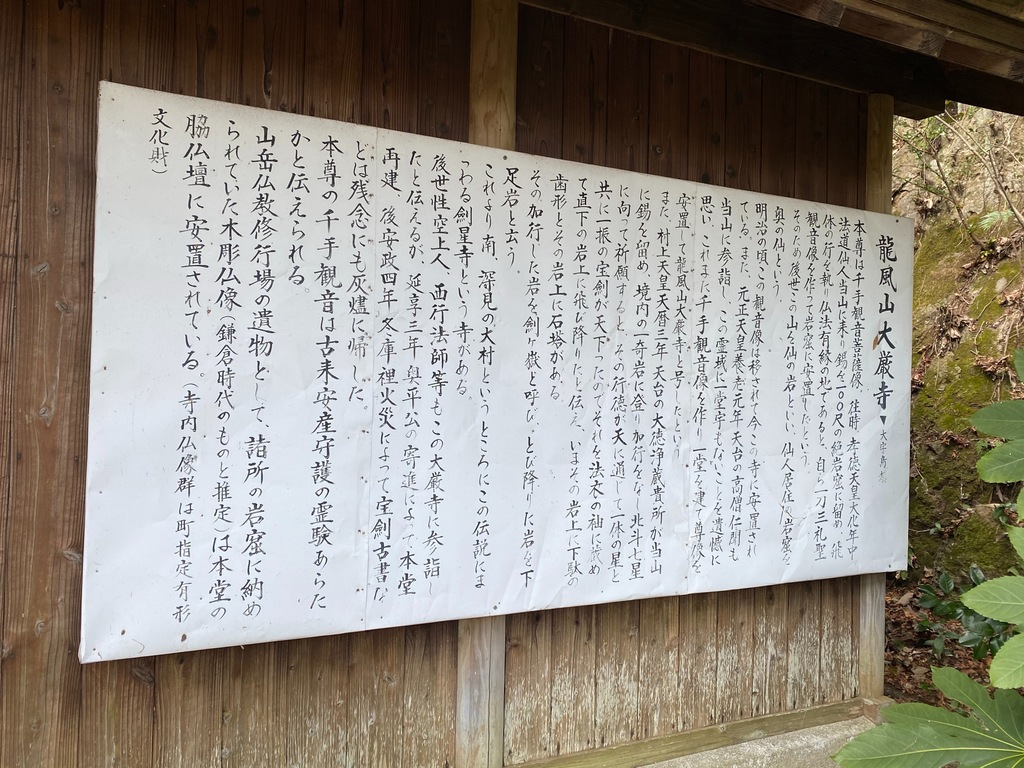 龍風山大厳寺
本尊は千手観音菩薩像、往時、孝徳天皇大化年中
法道仙人当山に来り錫を一〇〇尺の絶岩窟に留め、飛
体の行を執、仏法有縁の地であると、自ら一刀三礼聖
観音像を作って岩窟に安置したという。
そのため後世この山を仙の岩といい、仙人居住の岩窟を
奥の仙という。
明治の頃この観音像は移されて今この寺に安置され
ている。また、元正天皇養老元年天台の高僧仁聞も
当山に参詣し、この霊域に一堂宇もないことを遺憾に
思い、これまた千手観音像を作り一堂を建て尊像を
安置して龍風山大厳寺と号したという。
また、村上天皇天暦三年天台の大徳浄蔵貴所が当山
に錫を留め、境内の一奇岩に登り加行をなし北斗七星
に向って祈願すると、その行徳が天に通じて一体の星と
共に一振の宝剣が天下ったのでそれを法衣の袖に蔵め
て直下の岩上に飛び降りたと伝え、いまその岩上に下駄の
歯形とその岩上に石塔がある。
その加行した岩を剣ヶ嶽と呼び、とび降りた岩を下
足岩と云う。
これより南、深見の大村というところにこの伝説にま
つわる剣星寺という寺がある。
後世性空上人、西行法師等もこの大厳寺に参詣し
たと伝えるが、延享三年奥平公の寄進によって本堂
再建、後安政四年冬庫裡火災によって宝剣古書な
どは残念にも灰燼に帰した。
本尊の千手観音は古来安産守護の霊験あらた
かと伝えられる。
山岳仏教修行場の遺物として、諸所の岩窟に納め
られていた木彫仏像(鎌倉時代のものと推定)は本堂の
脇仏壇に安置されている。(寺内仏像群は町指定有形
文化財)